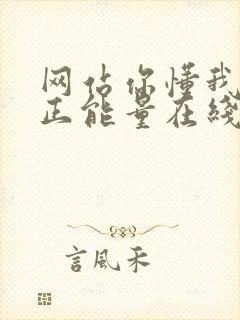 网占你懂我
正能量在线
言風禾